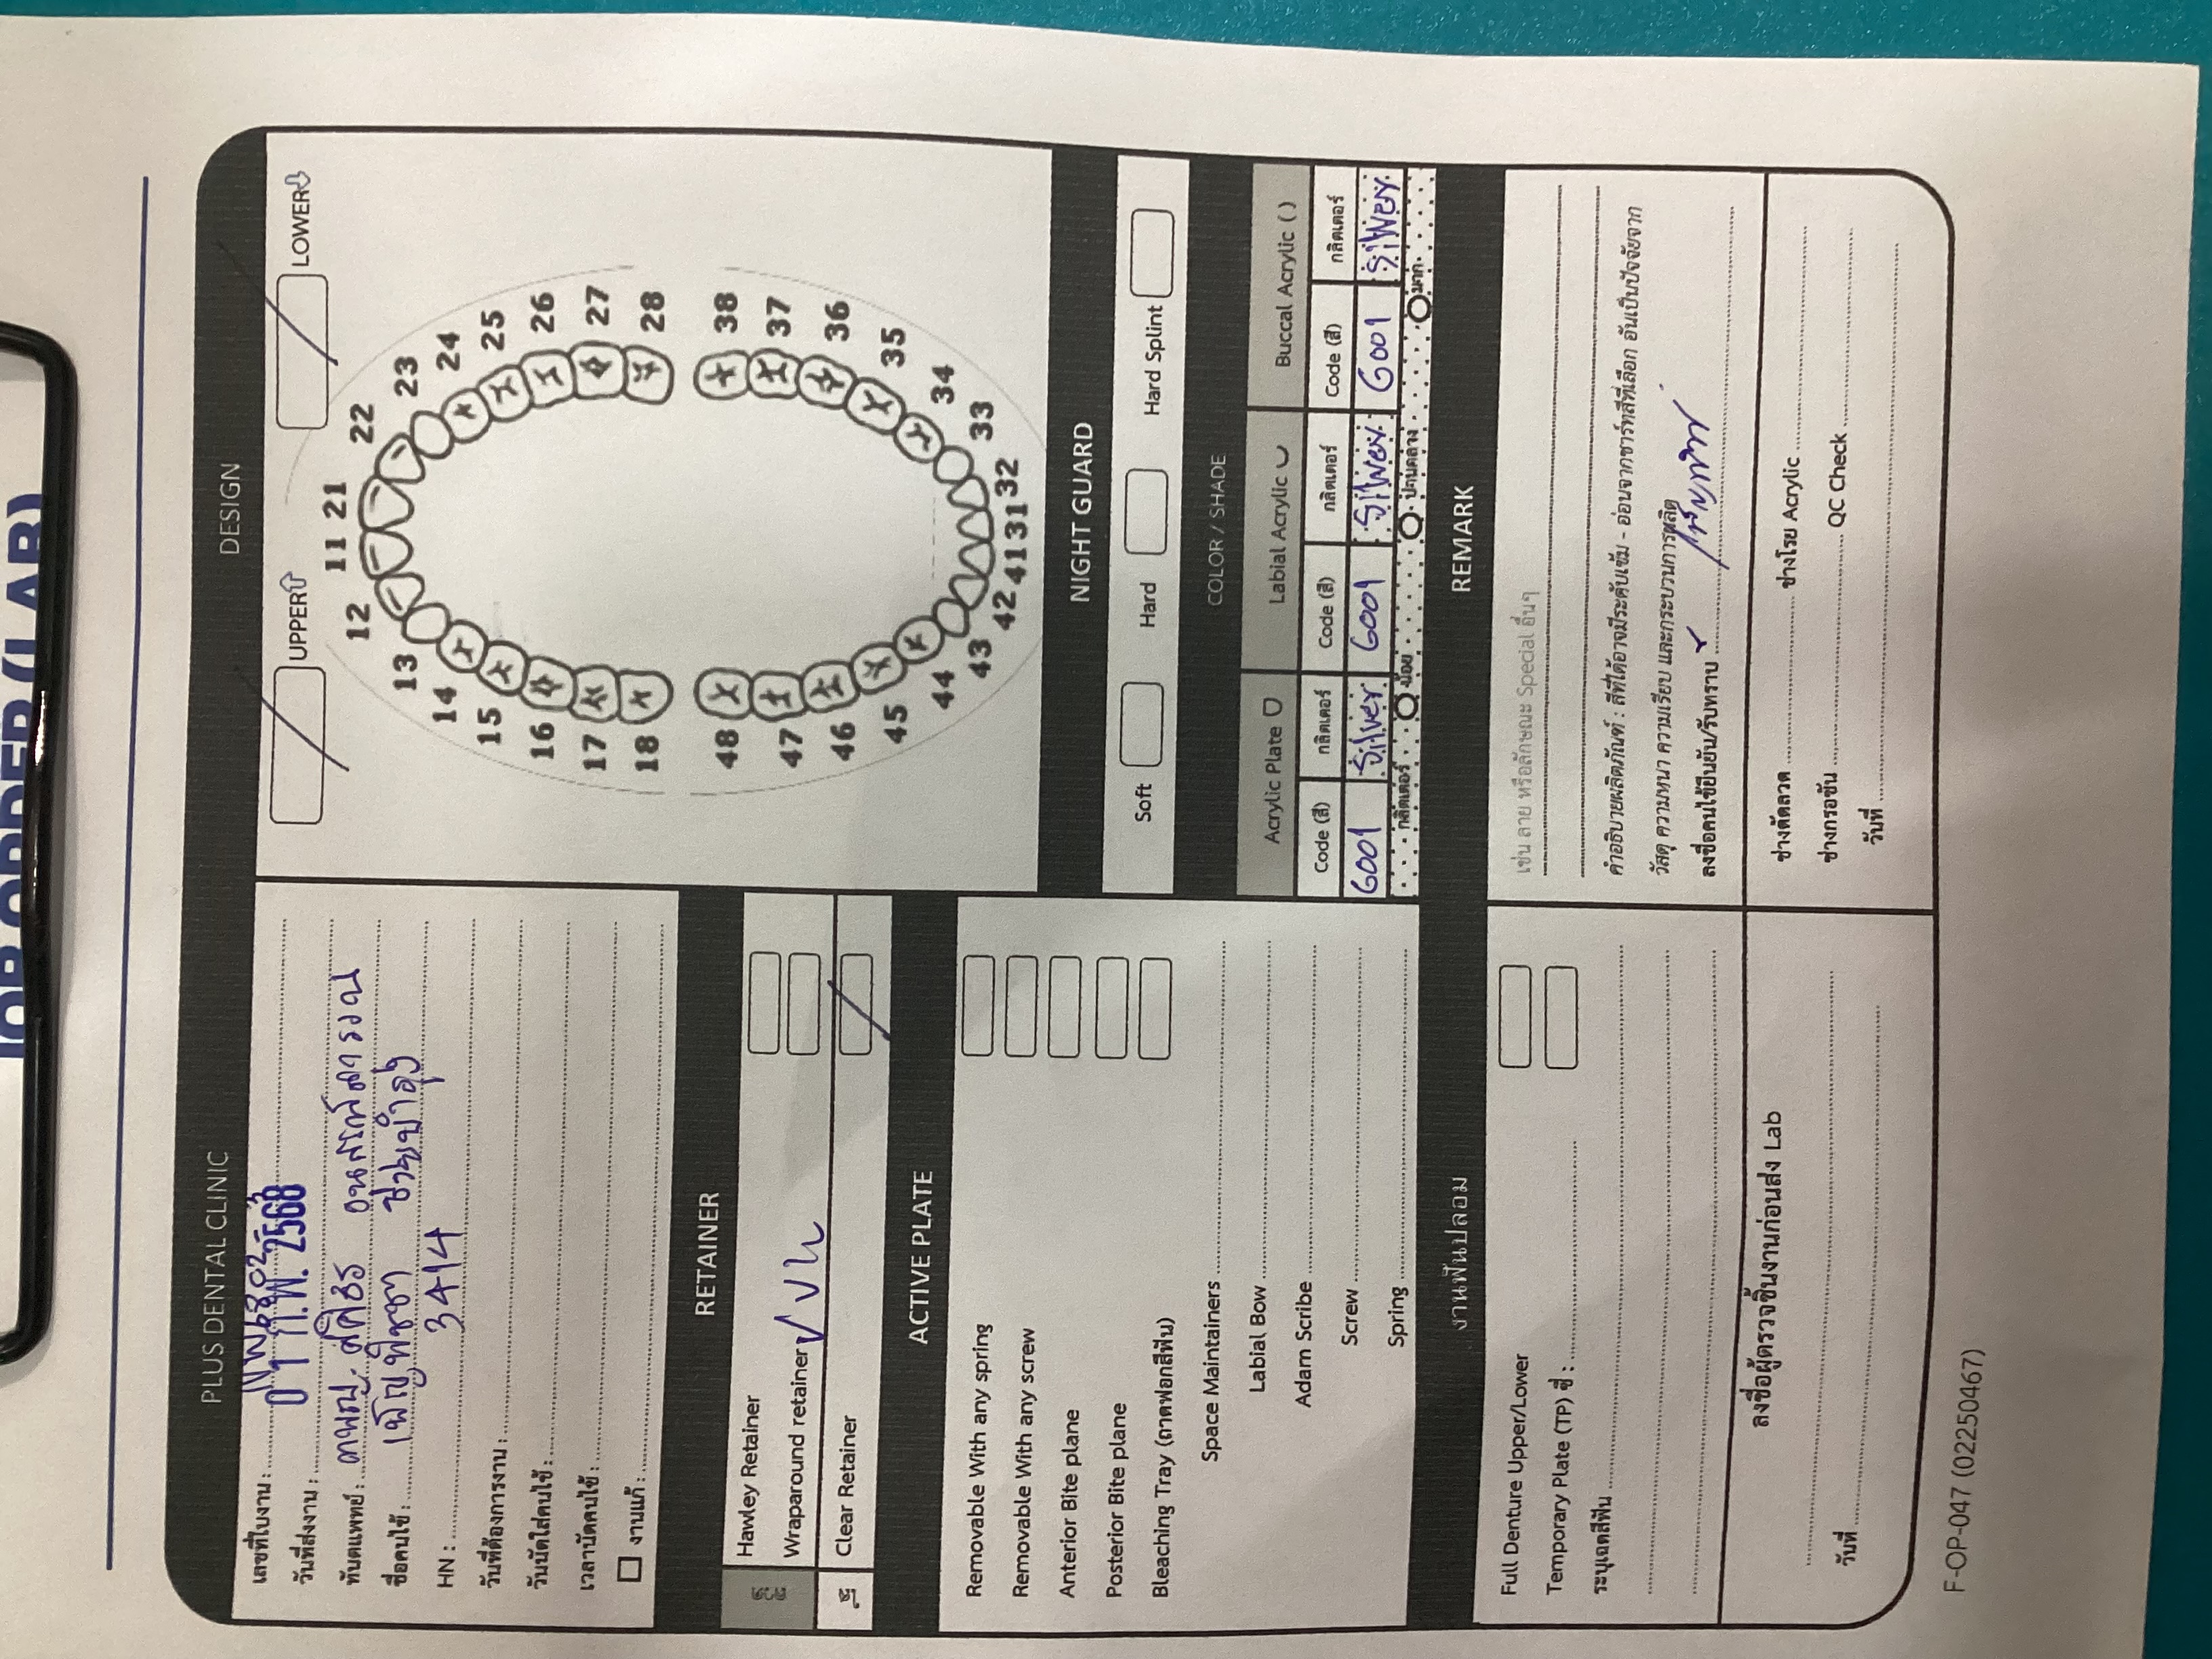 JOB ORDER (LAB)
PLUS DENTAL CLINIC
เลขที่ใบงาน :
วันที่ส่งงาน : 0 1 ก.พ. 2568
ทันตแพทย์ : ทพญ. ศศิธร
ชื่อคนไข้ : เพ็ญพิชชา ช่วยบำรุง
HN : 3414
วันที่ต้องการงาน :
วันนัดใส่คนไข้ :
เวลานัดคนไข้ :
งานแก้ :
RETAINER
ลวด
Hawley Retainer
Wraparound retainer บน
ใส
Clear Retainer
ACTIVE PLATE
Removable With any spring
Removable With any screw
Anterior Bite plane
Posterior Bite plane
Bleaching Tray (ถาดฟอกสีฟัน)
Space Maintainers
Labial Bow
Adam Scribe
Screw
Spring
งานฟันปลอม
Full Denture Upper/Lower
Temporary Plate (TP) ซี่ :
ระบุเฉดสีฟัน
ลงชื่อผู้ตรวจชิ้นงานก่อนส่ง Lab
วันที่
DESIGN
UPPER LOWER
11 21
12 22
13 23
14 24
15 25
16 26
17 27
18 28
48 38
47 37
46 36
45 35
44 34
43 33
42 41 31 32
NIGHT GUARD
Soft Hard Hard Splint
COLOR / SHADE
Acrylic Plate Labial Acrylic Buccal Acrylic ( )
Code (สี) กลิตเตอร์ Code (สี) กลิตเตอร์ Code (สี) กลิตเตอร์
G001 Silver G001 Silver G001 Silver
กลิตเตอร์ น้อย ปานกลาง มาก
REMARK
เช่น ลาย หรือลักษณะ Special อื่นๆ
คำอธิบายผลิตภัณฑ์ : สีที่ได้อาจมีระดับเข้ม - อ่อนจากชาร์ทสีที่เลือก อันเป็นปัจจัยจาก
วัสดุ ความหนา ความเรียบ และกระบวนการผลิต
ลงชื่อคนไข้ยืนยัน/รับทราบ
ช่างดัดลวด ช่างโรย Acrylic
ช่างกรอขัน QC Check
วันที่
F-OP-047 (02250467)